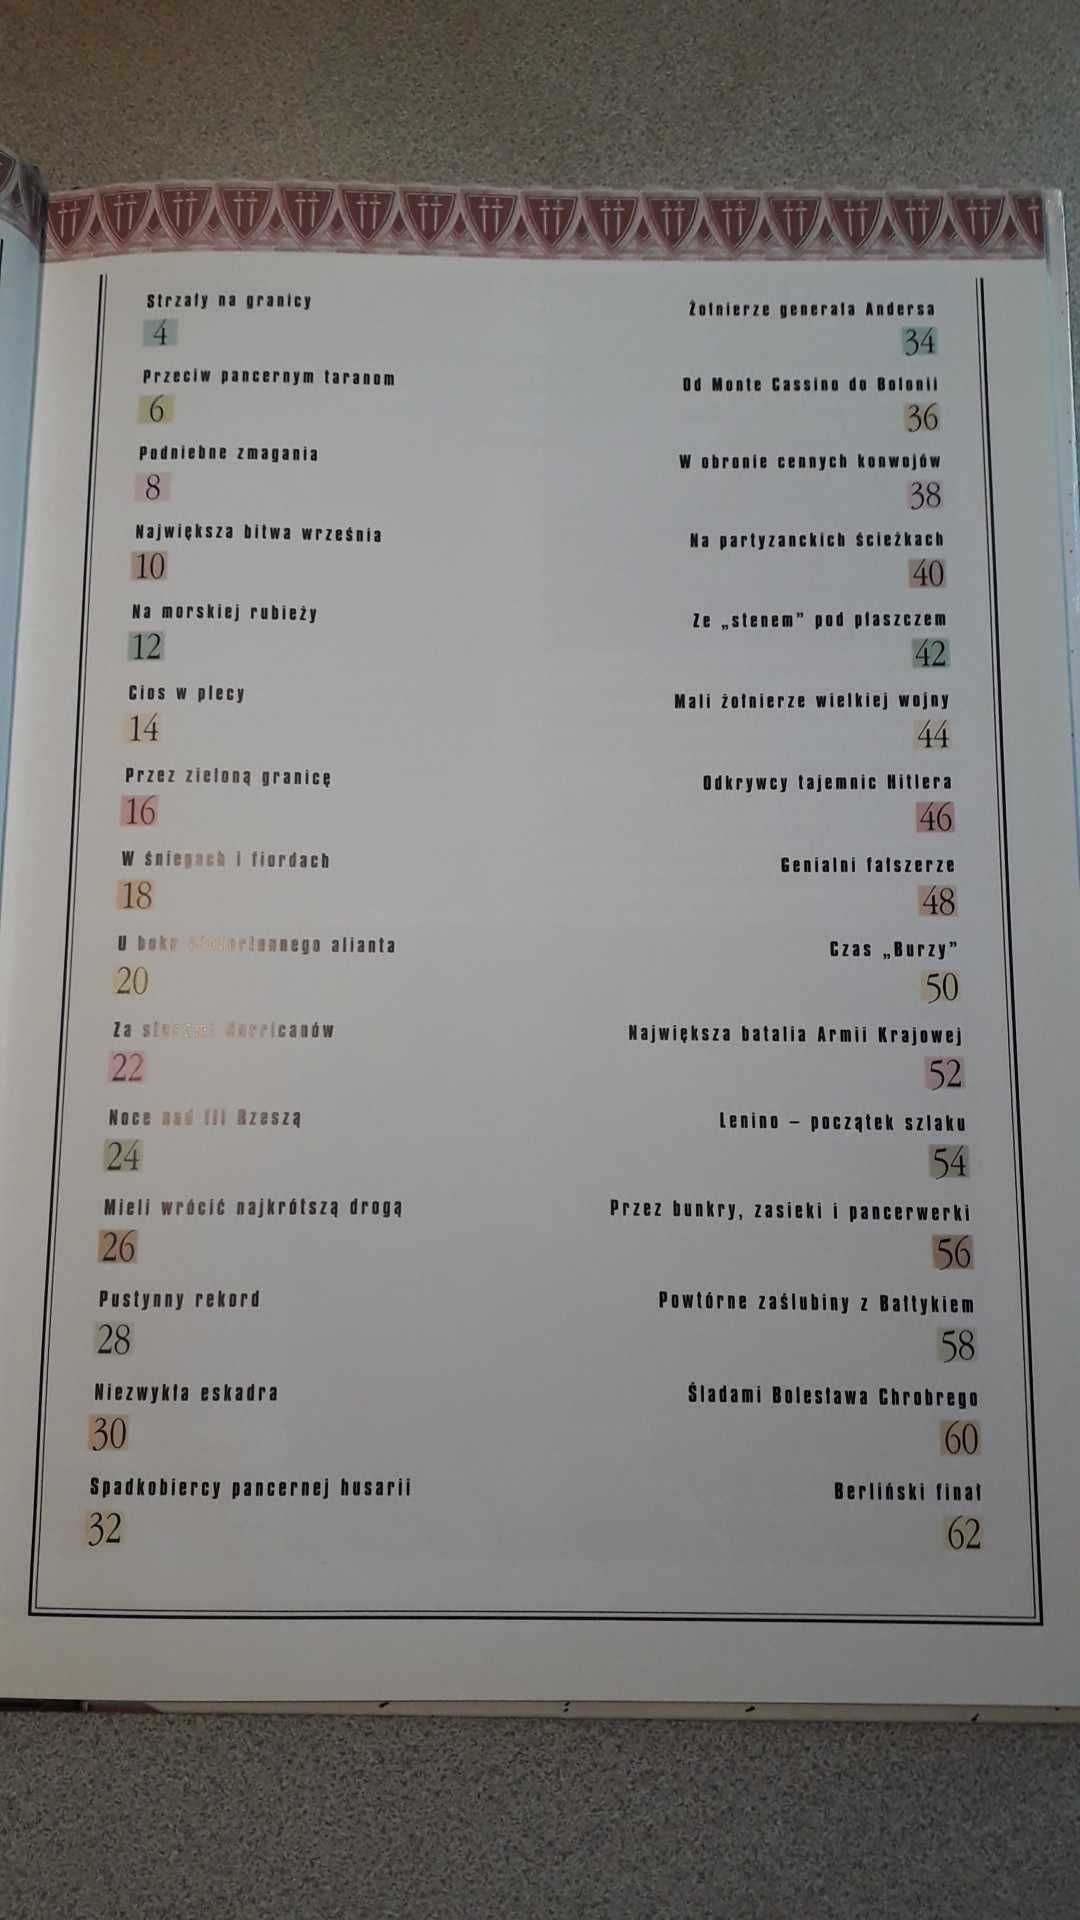 Strzały na granicy
4
Przeciw pancernym taranom
6
Podniebne zmagania
8
Największa bitwa września
10
Na morskiej rubieży
12
Cios w plecy
14
Przez zieloną granicę
16
W śniegach i fiordach
18
U boku alianta
20
Za
22
Noce nad III Rzeszą
24
Mieli wrócić najkrótszą drogą
26
Pustynny rekord
28
Niezwykła eskadra
30
Spadkobiercy pancernej husarii
32
Żołnierze generała Andersa
34
Od Monte Cassino do Bolonii
36
W obronie cennych konwojów
38
Na partyzanckich ścieżkach
40
Ze „stenem” pod płaszczem
42
Mali żołnierze wielkiej wojny
44
Odkrywcy tajemnic Hitlera
46
Genialni fałszerze
48
Czas „Burzy”
50
Największa batalia Armii Krajowej
52
Lenino – początek szlaku
54
Przez bunkry, zasieki i pancerwerki
56
Powtórne zaślubiny z Bałtykiem
58
Śladami Bolesława Chrobrego
60
Berliński finał
62